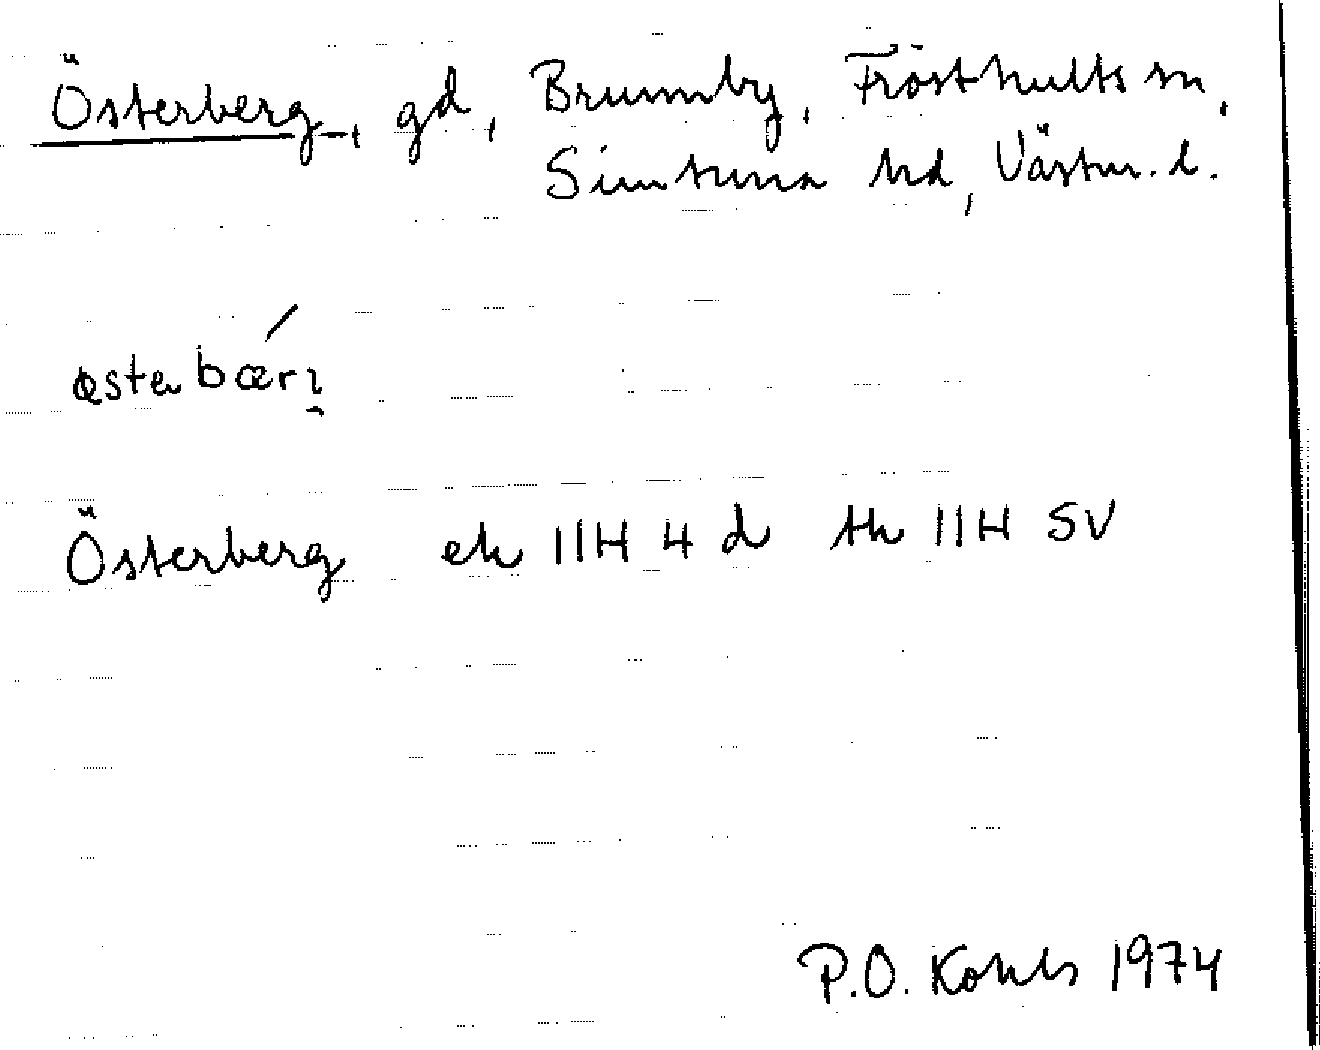 Österberg, gd, Brunnby, Frösthults sn,
Simtuna hd, Västm. l.
østerbærɪ
Österberg ek 11H 4 d tk 11H SV
P.O. 1974